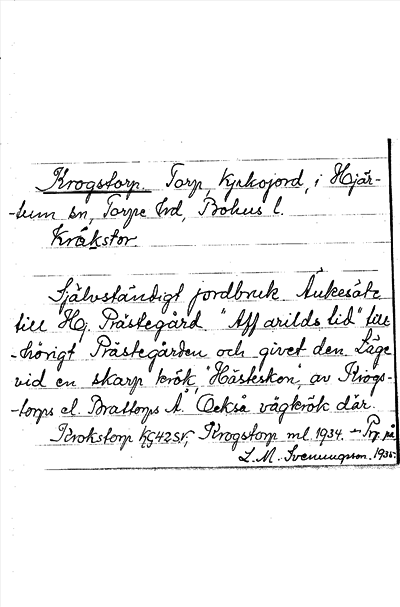 Krogstorp. Torp, kyrkojord, i Hjär-
-tum sn, Torpe hrd, Bohus l.
Kråkstor
Självständigt jordbruk. Änkesäte
till Hj. Prästegård. "Aff arilds tid" till-
-hörigt Prästegården och givet den. Läge
vid en skarp krök, "Hästeskon", av Krogs-
-torps el. Brattorps Å. Också vägkrök där.
Krokstorp Krogstorp ml. 1934. - 
L. M. Svenungsson. 1935.